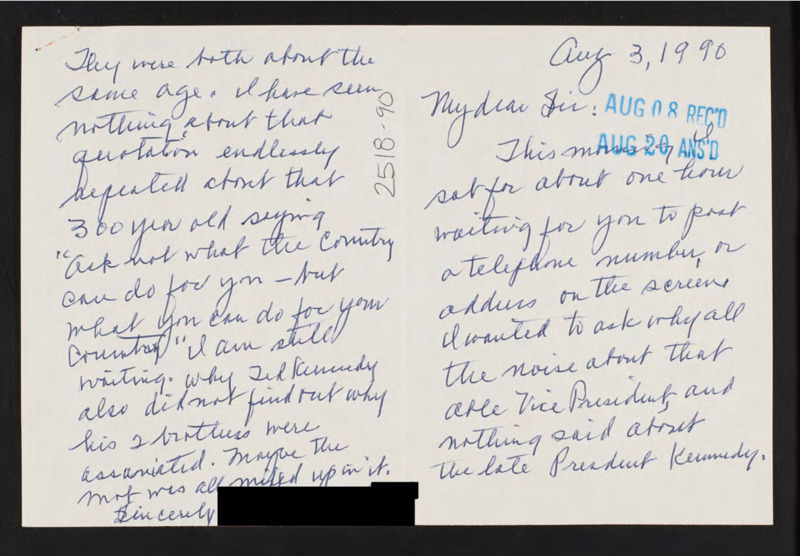 Aug 3, 1990
My dear Sir:
AUG 08 REC'D
AUG 20 ANS'D
This morning I
sat for about one hour
waiting for you to post
a telephone number, or
address on the screen.
I wanted to ask why all
the noise about that
able Vice President, and
nothing said about
the late President Kennedy.
They were both about the
same age. I have seen
nothing about that
quotation endlessly
repeated about that
300 year old saying
"Ask not what the Country
can do for you – but
what you can do for your
Country" I am still
waiting. Why Ted Kennedy
also did not find out why
his 2 brothers were
assasinated. Maybe the
Mob was all mixed up in it.
Sincerely
2518-90